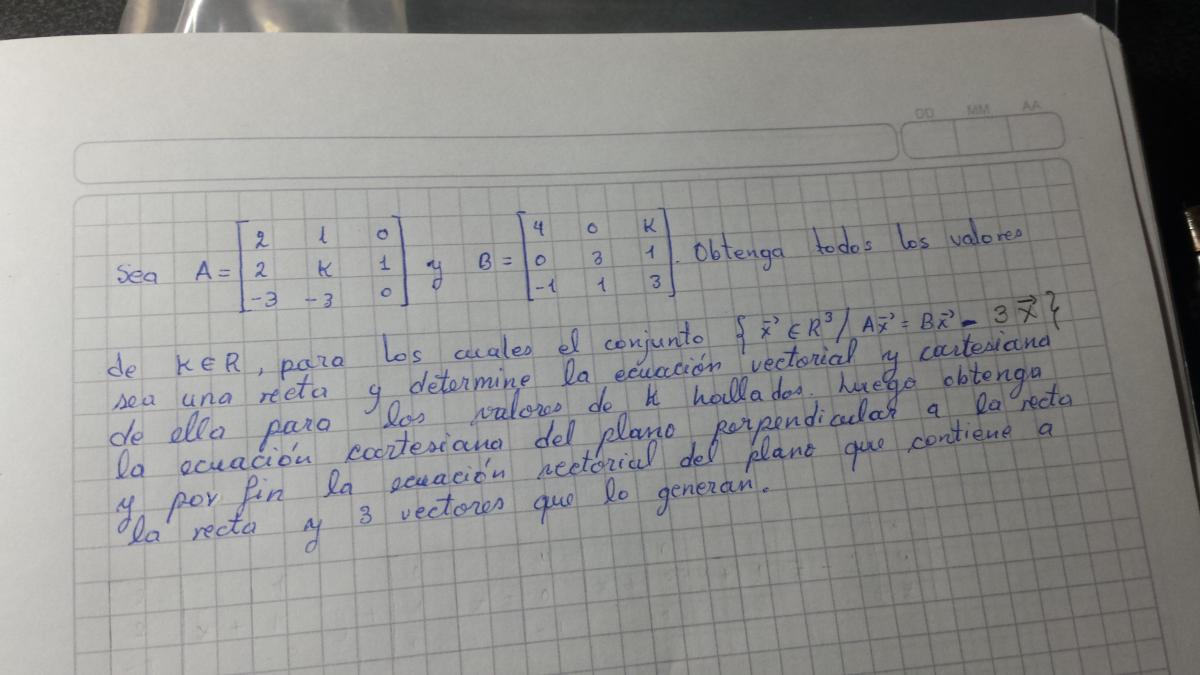 DD MM AA
Sea A = [2 1 0; 2 K 1; -3 -3 0] y B = [4 0 K; 0 3 1; -1 1 3]. Obtenga todos los valores
de K∈R, para los cuales el conjunto {x⃗ ∈ R³ / Ax⃗ = Bx⃗ - 3x⃗}
sea una recta y determine la ecuación vectorial y cartesiana
de ella para los valores de k hallados. Luego obtenga
la ecuación cartesiana del plano perpendicular a la recta
y por fin la ecuación vectorial del plano que contiene a
la recta y 3 vectores que lo generan.